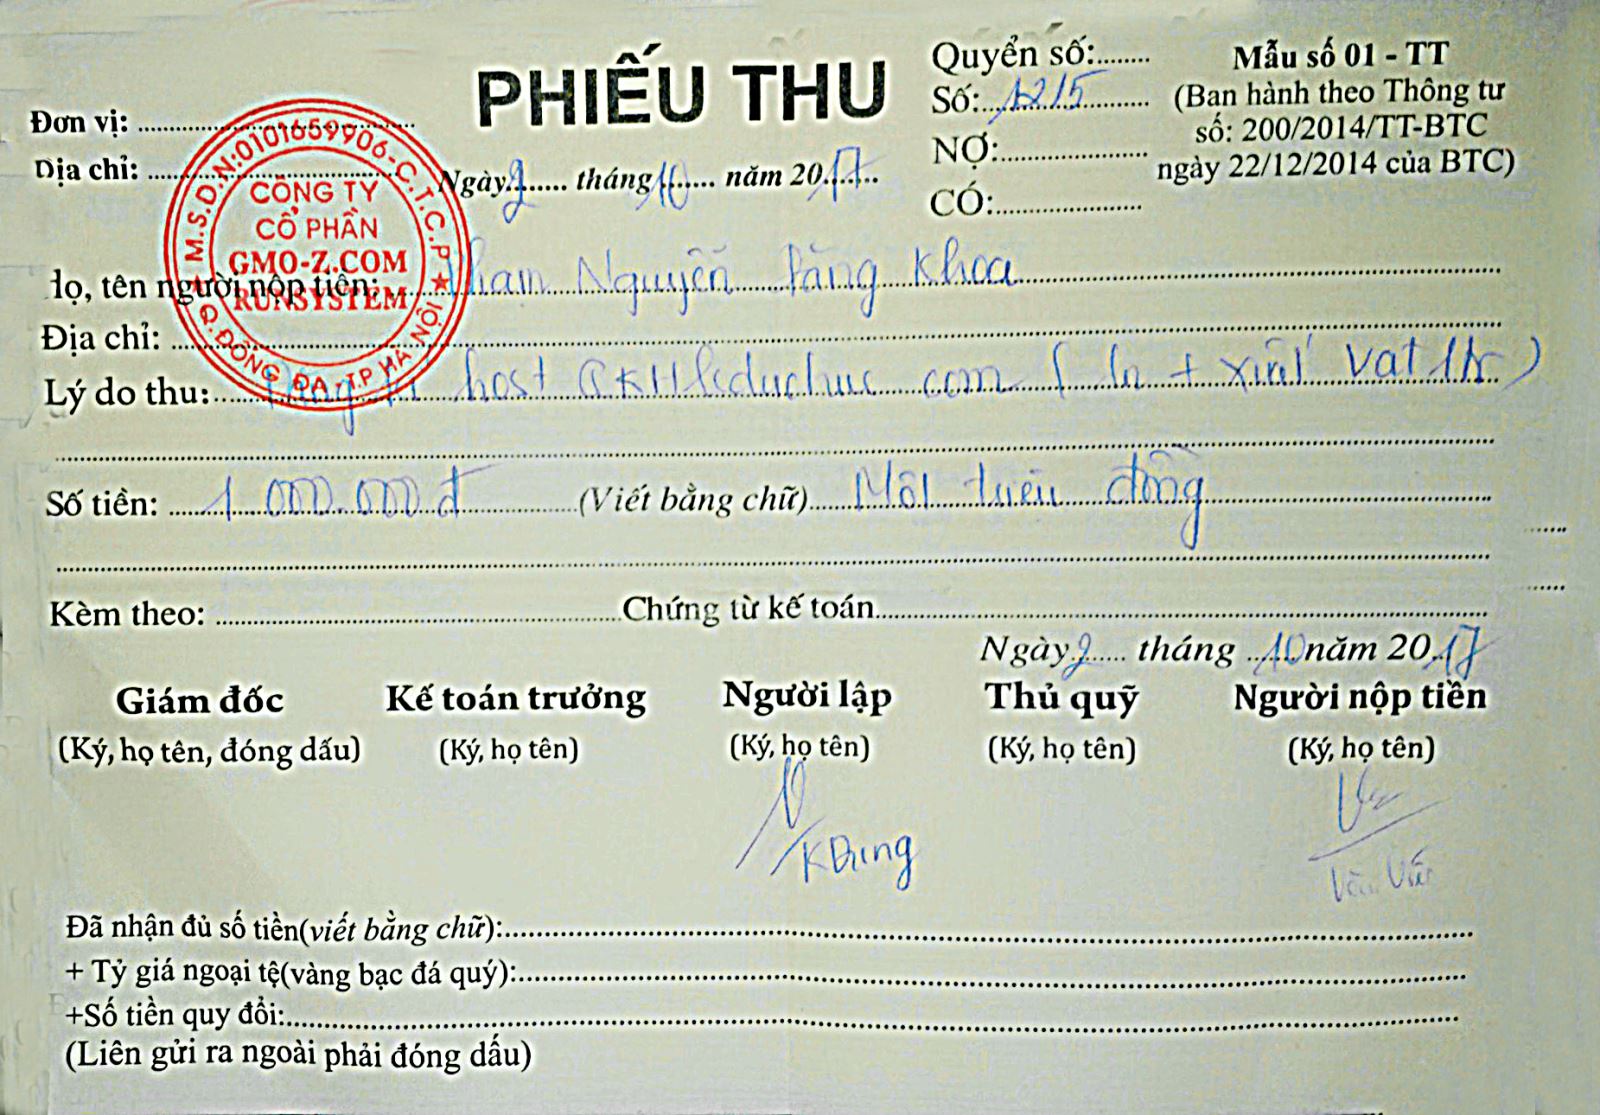 PHIẾU THU
Quyển số:........
Số:..1215..........
NỢ:....................
CÓ:....................
Mẫu số 01 - TT
(Ban hành theo Thông tư
số: 200/2014/TT-BTC
ngày 22/12/2014 của BTC)
Đơn vị: ........................................
Địa chỉ: ........................................
M.S.D.N:0101659906-C.T.C.P
CÔNG TY
CỔ PHẦN
GMO-Z.COM
RUNSYSTEM
Q.ĐỐNG ĐA - T.P HÀ NỘI
Ngày 2 tháng 10 năm 2017
Họ, tên người nộp tiền: Nguyễn Đăng Khoa
Địa chỉ: ........................................
Lý do thu: host com + vat
Số tiền: 1 000.000đ (Viết bằng chữ) Một triệu đồng
Kèm theo: ........................................Chứng từ kế toán........................................
Ngày 2 tháng 10 năm 2017
Giám đốc Kế toán trưởng Người lập Thủ quỹ Người nộp tiền
(Ký, họ tên, đóng dấu) (Ký, họ tên) (Ký, họ tên) (Ký, họ tên) (Ký, họ tên)
KDung
Đã nhận đủ số tiền(viết bằng chữ):........................................
+ Tỷ giá ngoại tệ(vàng bạc đá quý):........................................
+Số tiền quy đổi:........................................
(Liên gửi ra ngoài phải đóng dấu)